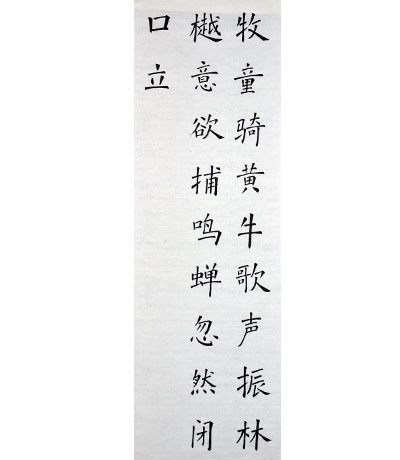 牧童骑黄牛歌声振林
樾意欲捕鸣蝉忽然闭
口立